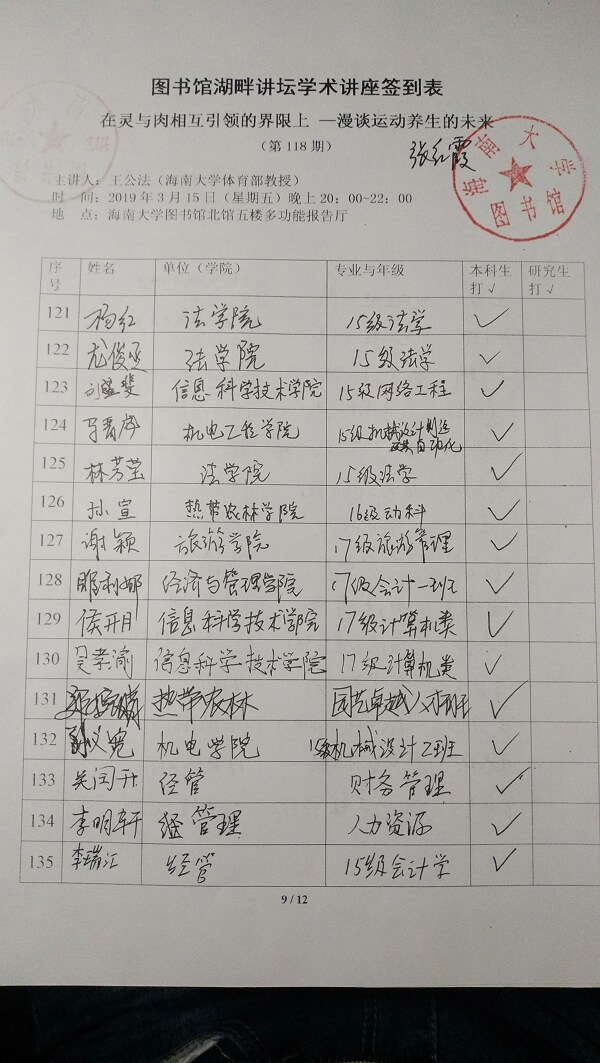 图书馆湖畔讲坛学术讲座签到表
在灵与肉相互引领的界限上 —漫谈运动养生的未来
（第 118 期）
张红霞
海南大学
图书馆
主讲人：王公法（海南大学体育部教授）
时 间：2019 年 3 月 15 日（星期五）晚上 20：00-22：00
地 点：海南大学图书馆北馆五楼多功能报告厅
序号 姓名 单位（学院） 专业与年级 本科生打√ 研究生打√
121 杨红 法学院 15级法学 √
122 尤俊丞 法学院 15级法学 √
123 信息科学技术学院 15级网络工程 √
124 机电工程学院 15级机械设计制造及其自动化 √
125 林芳莹 法学院 15级法学 √
126 孙宣 热带农林学院 16级动科 √
127 谢颖 旅游学院 17级旅游管理 √
128 经济与管理学院 17级会计一班 √
129 侯开月 信息科学技术学院 17级计算机类 √
130 吴孝渝 信息科学技术学院 17级计算机类 √
131 热带农林 园艺卓越 √
132 机电学院 15级机械设计2班 √
133 关闫升 经管 财务管理 √
134 李明轩 经管管理 人力资源 √
135 李瑞江 经管 15级会计学 √
9 / 12